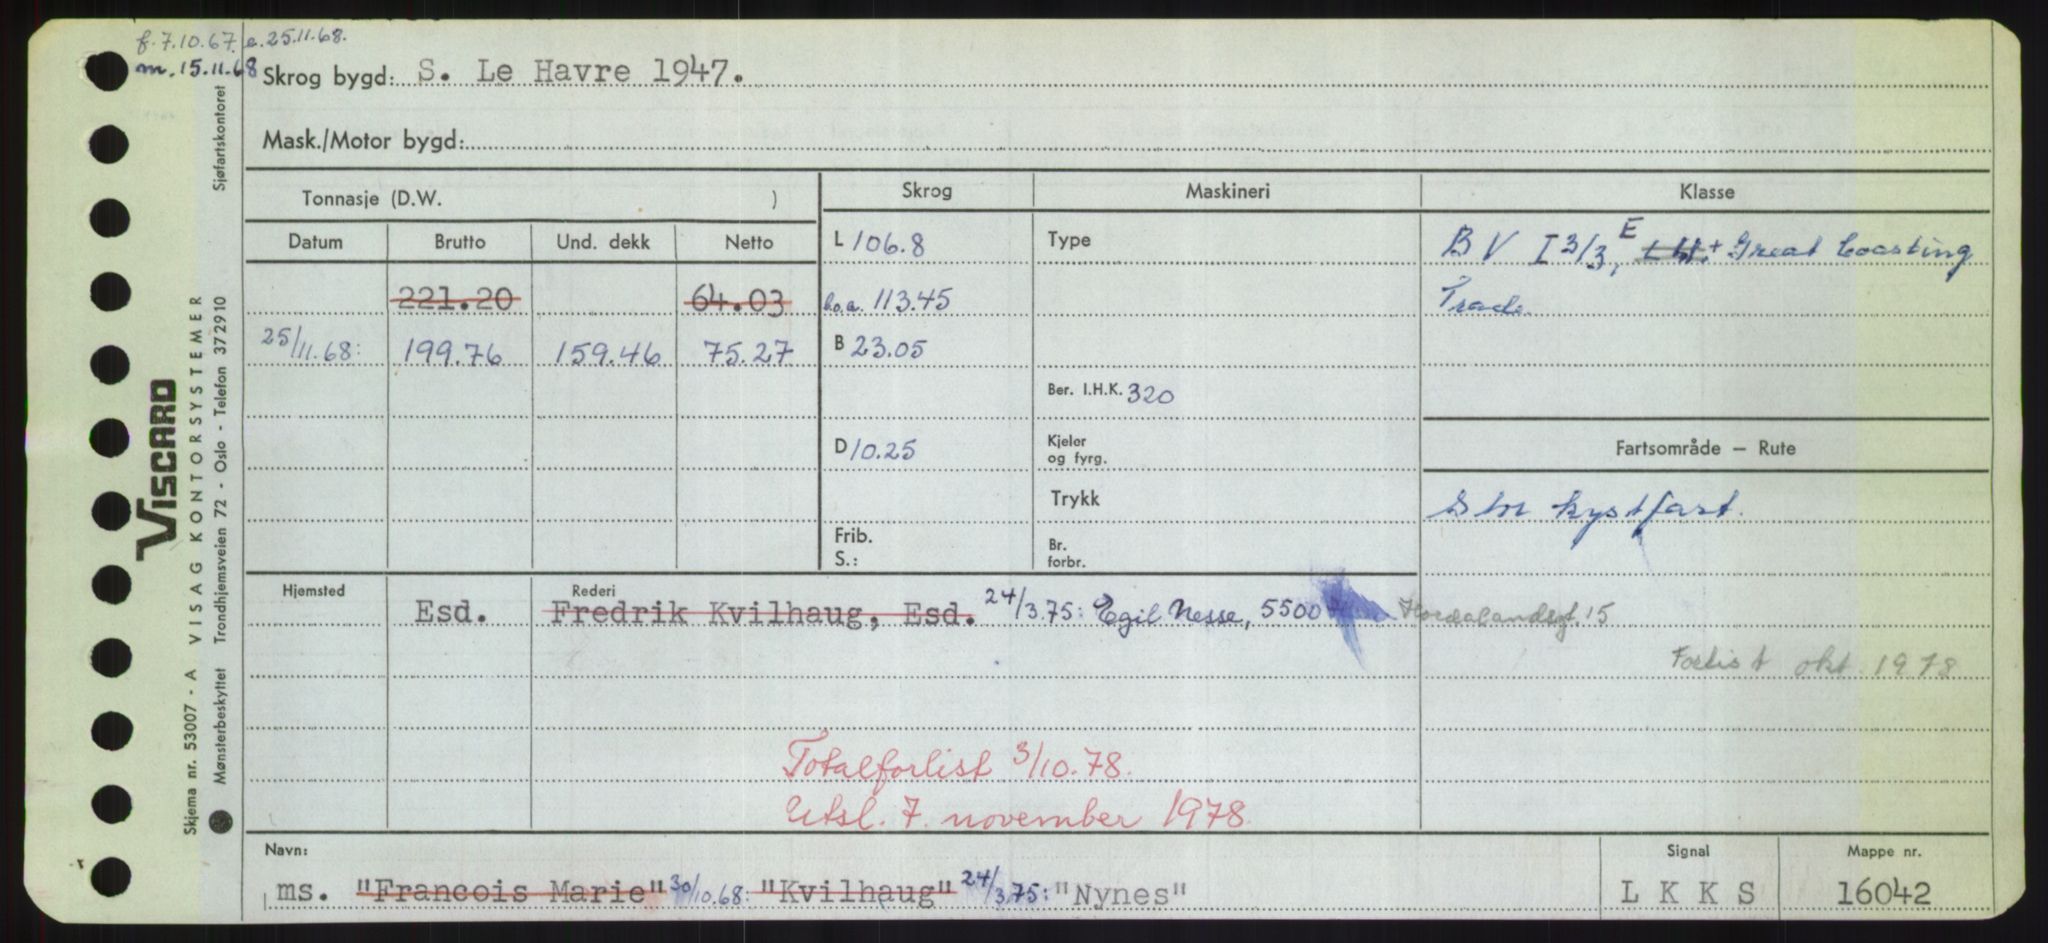 f. 7.10.67. e. 25.11.68.
m. 15.11.68
Skrog bygd: S. Le Havre 1947.
Mask./Motor bygd:
Tonnasje (D.W. )
Skrog
Maskineri
Klasse
Datum Brutto Und. dekk Netto
L 106.8
Type
B V I 3/3, E + Great Coasting
221.20 64.03
l.o.a. 113.45
Trade.
25/11.68: 199.76 159.46 75.27
B 23.05
Ber. I.H.K. 320
D 10.25
Kjeler
og fyrg.
Fartsområde – Rute
Trykk
kystfart.
Frib.
S.:
Br.
forbr.
Hjemsted
Rederi
Esd. Fredrik Kvilhaug, Esd. 24/3.75: Egil Nesse, 5500 Hordalandsgt. 15
Forlist okt. 1978
Totalforlist 3/10.78.
Utsl. 7. november 1978.
Navn:
Signal
Mappe nr.
ms. "Francois Marie" 30/10.68: "Kvilhaug" 24/3.75: "Nynes"
L K K S
16042
VISCARD
Skjema nr. 53007 - A VISAG KONTORSYSTEMER
Mønsterbeskyttet Trondhjemsveien 72 - Oslo - Telefon 372910 Sjøfartskontoret